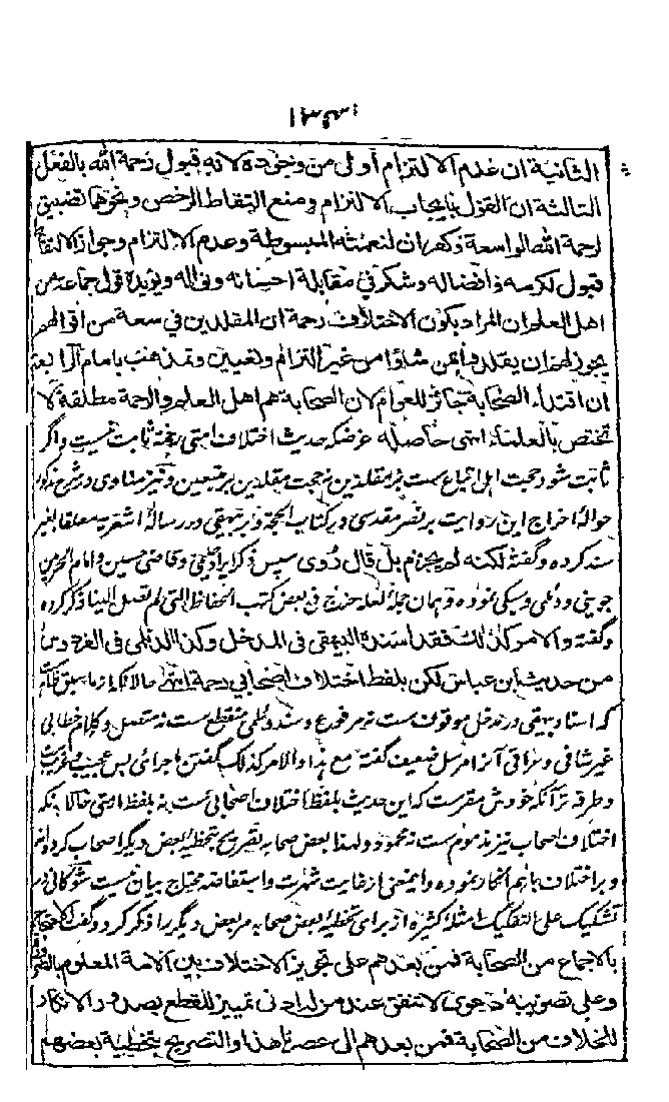 الثانية ان عدم الالتزام أولى من وجوده لانه قبول رحمة الله بالفعل
الثالثة ان القول بايجاب الالتزام ومنع التقاط الرخص ونحوهما تضييق
لرحمة الله الواسعة وكفران لنعمته المبسوطة وعدم الالتزام وجواز الالتقاط
قبول لكرمه وافضاله وشكر في مقابلة احسانه ونواله ويؤيده قول جماعة من
اهل العلم ان المراد بكون الاختلاف رحمة ان المقلدين في سعة من أقوالهم
يجوز لهم ان يقلدوا من شاؤا من غير التزام وتعيين وتمذهب بامام الرابعة
ان اقتداء الصحابة جائز للعوام لان الصحابة هم اهل العلم والرحمة مطلقة لا
تختص بالعلماء انتهى حاصله عرضكه حديث اختلاف امتى رحمة ثابت نيست واگر
ثابت شود حجت اهل اتباع ست بر مقلدين نه حجت مقلدين بر متبعين ونيز مناوى در شرح مذكور
حوالهٔ اخراج اين روايت بر نصر مقدسى در كتاب الحجة وبر بيهقى در رسالهٔ اشعريه معلقا بغير
سند كرده وگفته لكنه لم يجزم به بل قال روى سپس ذكر ايراد حليمى وقاضى حسين وامام الحرمين
جوينى وديلمى وسبكى نموده وبهمان جمله لعله خرج فى بعض كتب الحفاظ التى لم تصل الينا ذكر كرده
وگفته والامر كذلك فقد اسنده البيهقى فى المدخل وكذا الديلمى فى الفردوس
من حديث ابن عباس لكن بلفظ اختلاف اصحابي رحمة انتهى حالانكه از ما سبق
كه اسناد بيهقى در مدخل موقوف ست نه مرفوع وسند ديلمى منقطع ست نه متصل وكلام خطابى
غير شافى وعراقى آنرا مرسل ضعيف گفته مع هذا والامر كذلك گفتن ماجرائى بس عجيب
وطرفه تر آنكه خودش مقر ست كه اين حديث بلفظ اختلاف اصحابى ست نه بلفظ امتى حالانكه
اختلاف اصحاب نيز مذموم ست نه محمود ولهذا بعض صحابه تصريح بتخطيهٔ بعض ديگر اصحاب كرده اند
وبر اختلاف باهم انكار نموده واينمعنى از غايت شهرت واستفاضه محتاج بيان نيست شوكانى در
تشكيك على التفكيك امثلهٔ كثيره از براى تخطيهٔ بعض صحابه مر بعض ديگر را ذكر كرده وگفته
بالاجماع من الصحابة فمن بعدهم على تجويز الاختلاف بين الامة المعلوم
وعلى تصويبه دعوى لا تتفق عند من له ادنى تمييز للقطع بصدور الانكار
للخلاف من الصحابة فمن بعدهم الى عصرنا هذا والتصريح بتخطية بعضهم